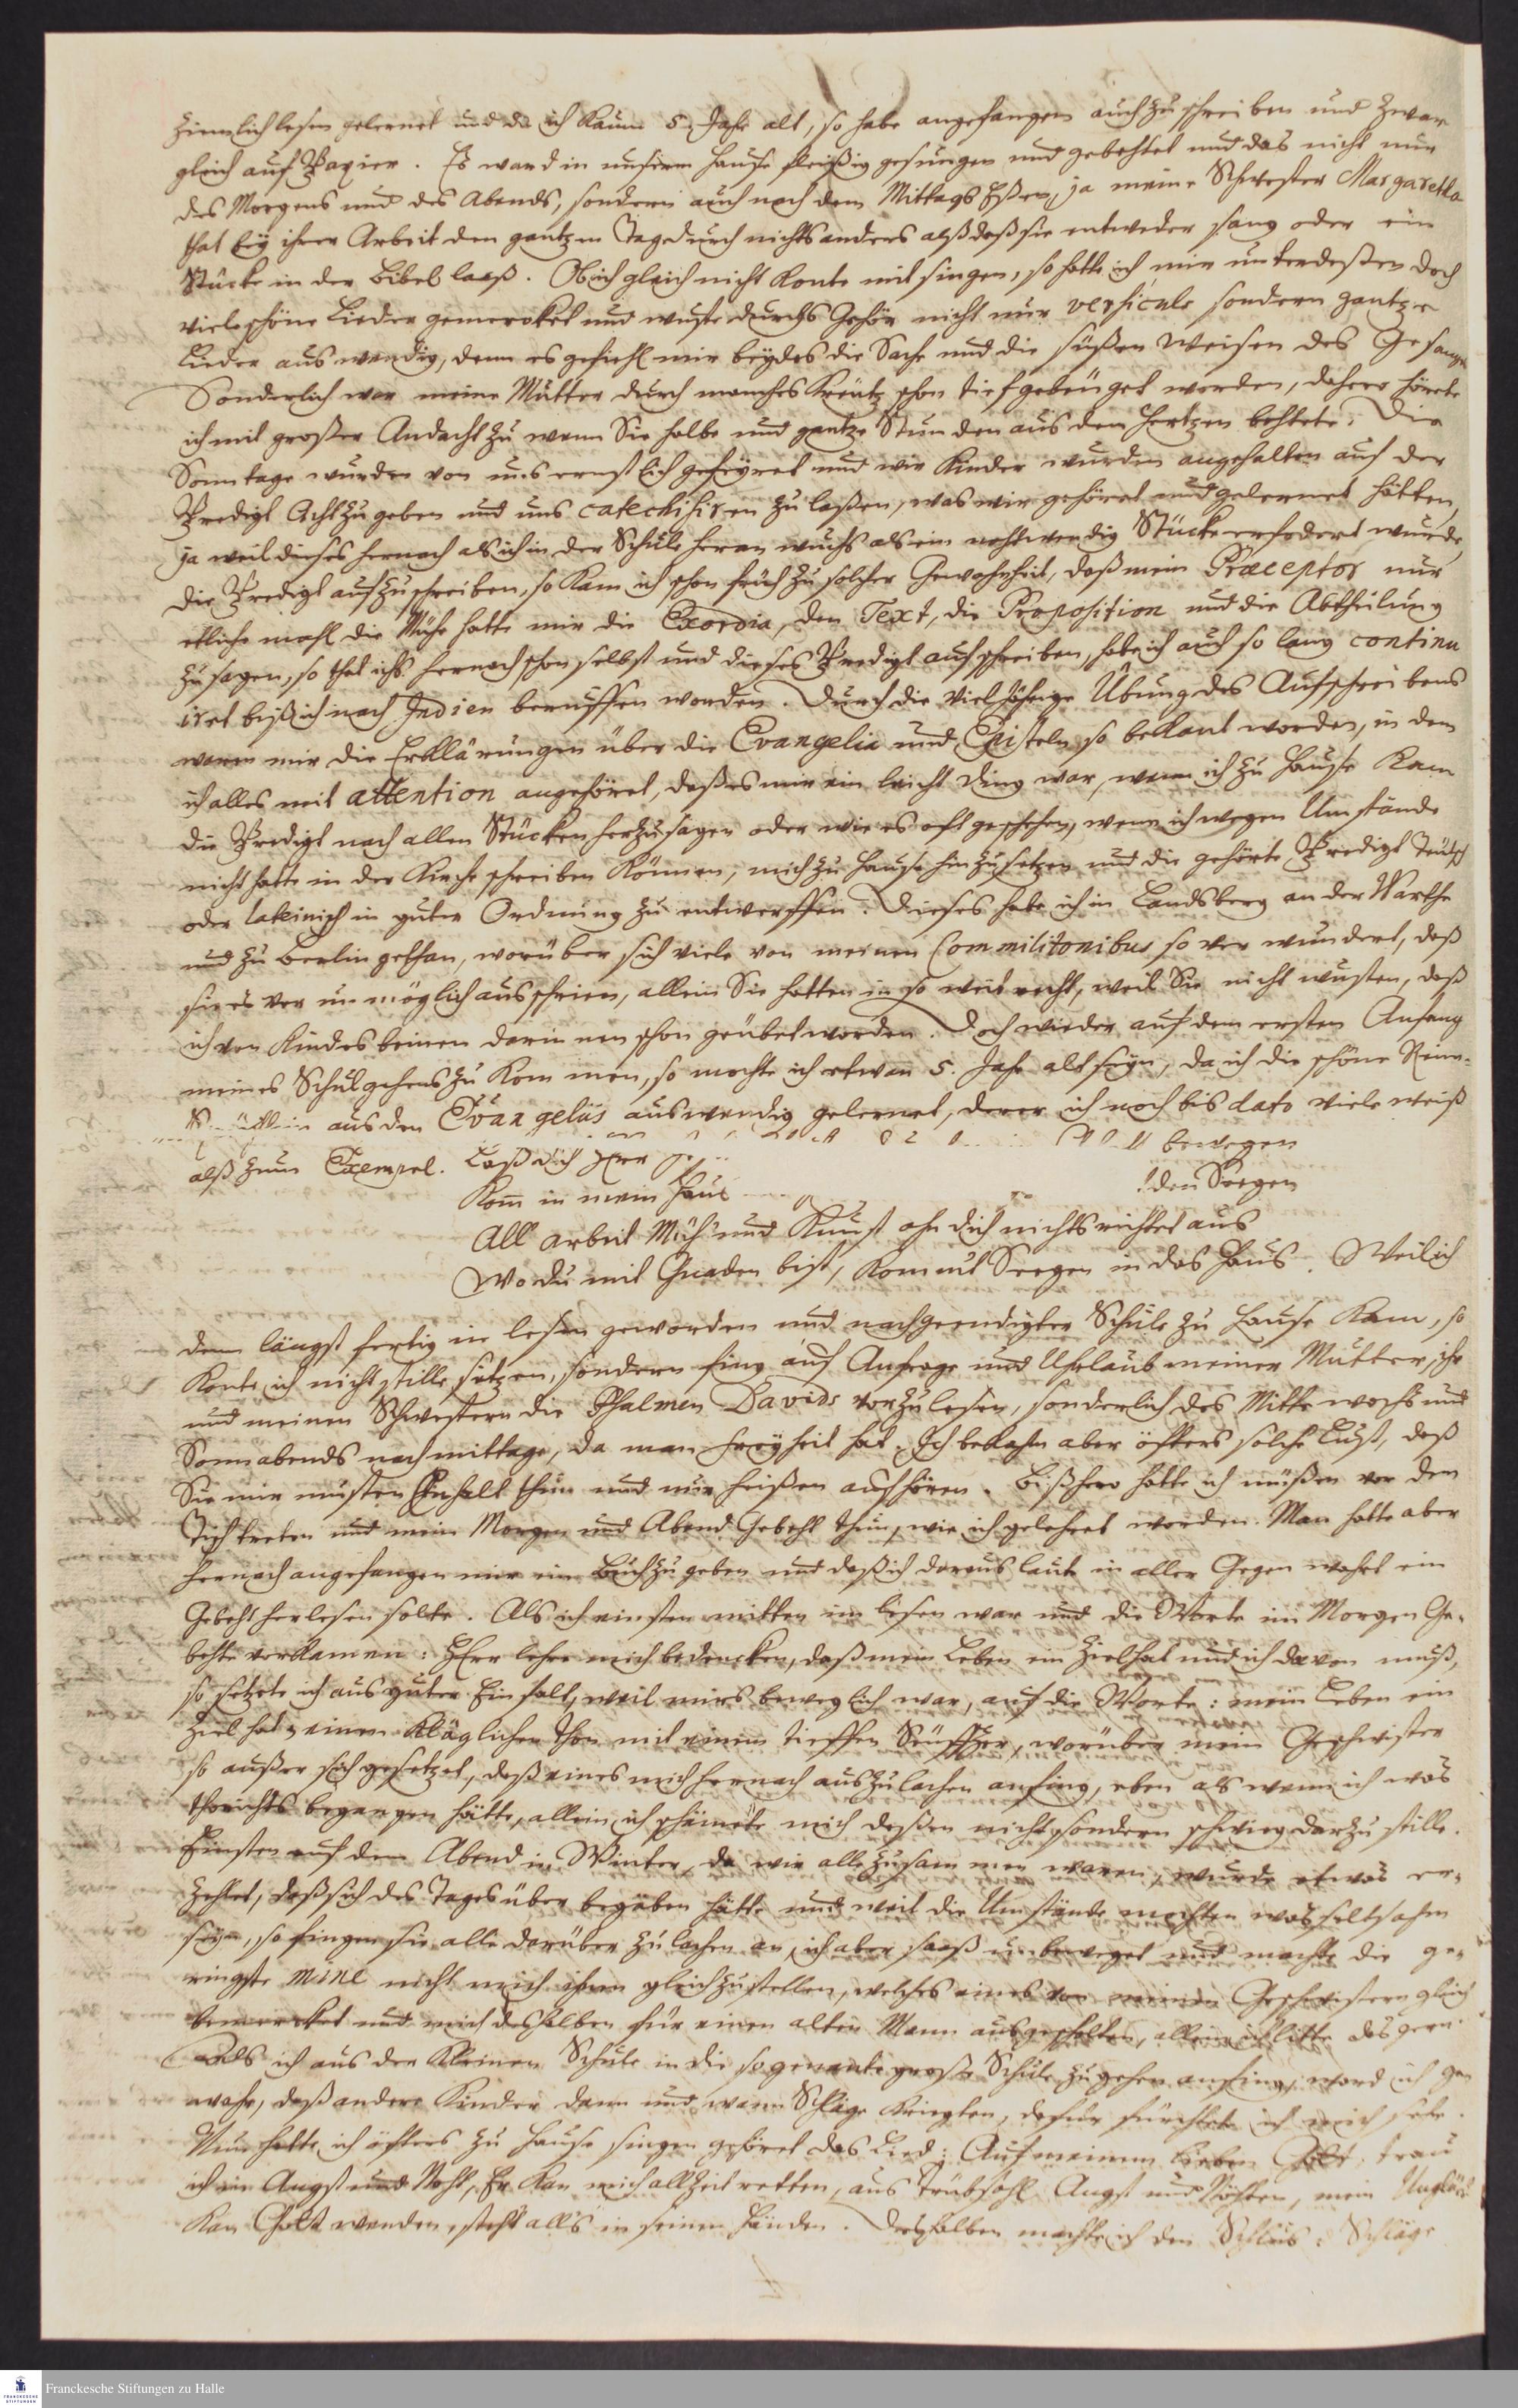 ziemlich lesen gelernet und da ich kaum 5. Jahr alt, so habe angefangen auch zu schreiben und zwar
gleich auf Papier. Es ward in unserm Hause fleißig gesungen und gebehtet und das nicht nur
des Morgens und des Abends, sondern auch nach dem Mittags Eßen, ja meine Schwester Margaretha
that bey ihrer Arbeit den gantzen Tag durch nichts anders alß daß sie entweder sang oder ein
Stücke in der Bibel laaß. Ob ich gleich nicht konte mit singen, so hatte ich mir unterdeßen doch
viele schöne Lieder gemercket und wuste durchs Gehör nicht nur versicule sondern gantze
Lieder auswendig, denn es gefiehl mir beydes die Sache und die süßen Weisen des Gesangs
Sonderlich war meine Mutter durch manches Kreutz schon tief gebeuget worden, dahero hörete
ich mit großer Andacht zu wenn Sie halbe und gantze Stunden aus dem Hertzen behtete. Die
Sonntage wurden von uns ernstlich gefeyret und wir Kinder wurden angehalten auf der
Predigt Acht zu geben und uns catechisiren zu laßen, was wir gehöret und gelernet hätten,
ja weil dieses hernach als ich in der Schule heran wuchs als ein nohtwendig Stücke erfodert wurde,
die Predigt aufzuschreiben, so kam ich schon früh zu solcher Gewohnheit, daß mein Præceptor nur
etliche mahl die Mühe hatte mir die Exordia, den Text, die Proposition und die Abtheilung
zu sagen, so that ichs hernach schon selbst und dieses Predigt aufschreiben, habe ich auch so lang continu
iret biß ich nach Indien beruffen worden. Durch die vieljährige Übung des Aufschreibens
waren mir die Erklärungen über die Evangelia und Episteln so bekant worden, in dem
ich alles mit attention angehöret, daß es mir ein leicht Ding war, wenn ich zu Hause kam
die Predigt nach allen Stücken herzusagen oder wie es oft geschehen, wenn ich wegen Umstände
nicht hatte in der Kirche schreiben können, mich zu Hause hin zu setzen und die gehörte Predigt teutsch
oder lateinisch in guter Ordnung zu entwerffen. Dieses habe ich in Landsberg an der Warthe
und zu Berlin gethan, worüber sich viele von meinen Commilitonibus so verwundert, daß
sie es vor unmöglich ausschrien, allein Sie hatten in so weit recht, weil Sie nicht wusten, daß
ich von Kindesbeinen darinnen schon geübet worden. Doch wieder auf den ersten Anfang
meines Schulgehens zu kommen, so mochte ich etwan 5. Jahr alt seyn, da ich die schöne Reim-
aus den Evangeliis auswendig gelernet, derer ich noch bis dato viele weiß
alß zum Exempel. Laß dich Herr bewegen
Kom in mein Hauß den Seegen
All arbeit Müh und Kunst ohn dich nichts richtet aus
Wo du mit Gnaden bist, komt Seegen in das Haus. Weil ich
denn längst fertig im lesen geworden und nach geendigter Schule zu Hause kam, so
konte ich nicht stille sitzen, sondern fing auf Anfrage und Uhrlaub meiner Mutter, ihr
und meinen Schwestern die Psalmen Davids vorzulesen, sonderlich des Mittewochs und
Sonnabends nachmittage, da man Freyheit hat. Ich bekahm aber öffters solche Lust, daß
Sie mir musten Einhalt thun und mir heißen aufhören. Bißhero hatte ich müßen vor den
Tisch treten und mein Morgen und Abend Gebeht thun, wie ich gelehret worden. Man hatte aber
hernach angefangen mir ein Buch zu geben und daß ich daraus laut in aller Gegenwahrt ein
Gebeht herlesen solte. Als ich einsten mitten im lesen war und die Worte im Morgen Ge-
behte vorkamen: Herr lehre mich bedencken, daß mein Leben ein Ziel hat und ich davon muß,
so setzete ich aus guter Einfalt, weil mirs beweglich war, auf die Worte: mein Leben ein
Ziel hat, einen kläglichen thon mit einem tieffen Seuffzer, worüber mein Geschwister
so außer sich gesetzet, daß eines mich hernach auszulachen anfing, eben als wenn ich was
thörichts begangen hätte, allein ich schämete mich deßen nicht sondern schwieg darzu stille.
Einsten auf den Abend im Winter, da wir alle zusammen waren, wurde etwas er-
zehlet, daß sich des Tages über begeben hätte und weil die Umstände mochten was seltsahm
seyn, so fingen sie alle darüber zu lachen an, ich aber saaß unbeweget und machte die ge-
ringste mine nicht mich ihnen gleich zu stellen, welches eines von meinen Geschwistern gleich
bemercket und mich deshalben für einen alten Mann ausgescholten, allein ich litte das gern.
Als ich aus der kleinen Schule in die so genante große Schule zu gehen anfing, ward ich ge
wahr, daß andere Kinder dann und wann Schläge kriegten, dafür fürchtete ich mich sehr.
Nun hatte ich öfters zu Hause singen gehöret das Lied: Auf meinen lieben Gott, trau
ich in Angst und Noht, Er kan mich allzeit retten, aus Trübsahl Angst und Nöhten, mein Unglück
kan Gott wenden, steht alls in seinen Händen. Deshalben machte ich den Schluß: Schläge
Franckesche Stiftungen zu Halle